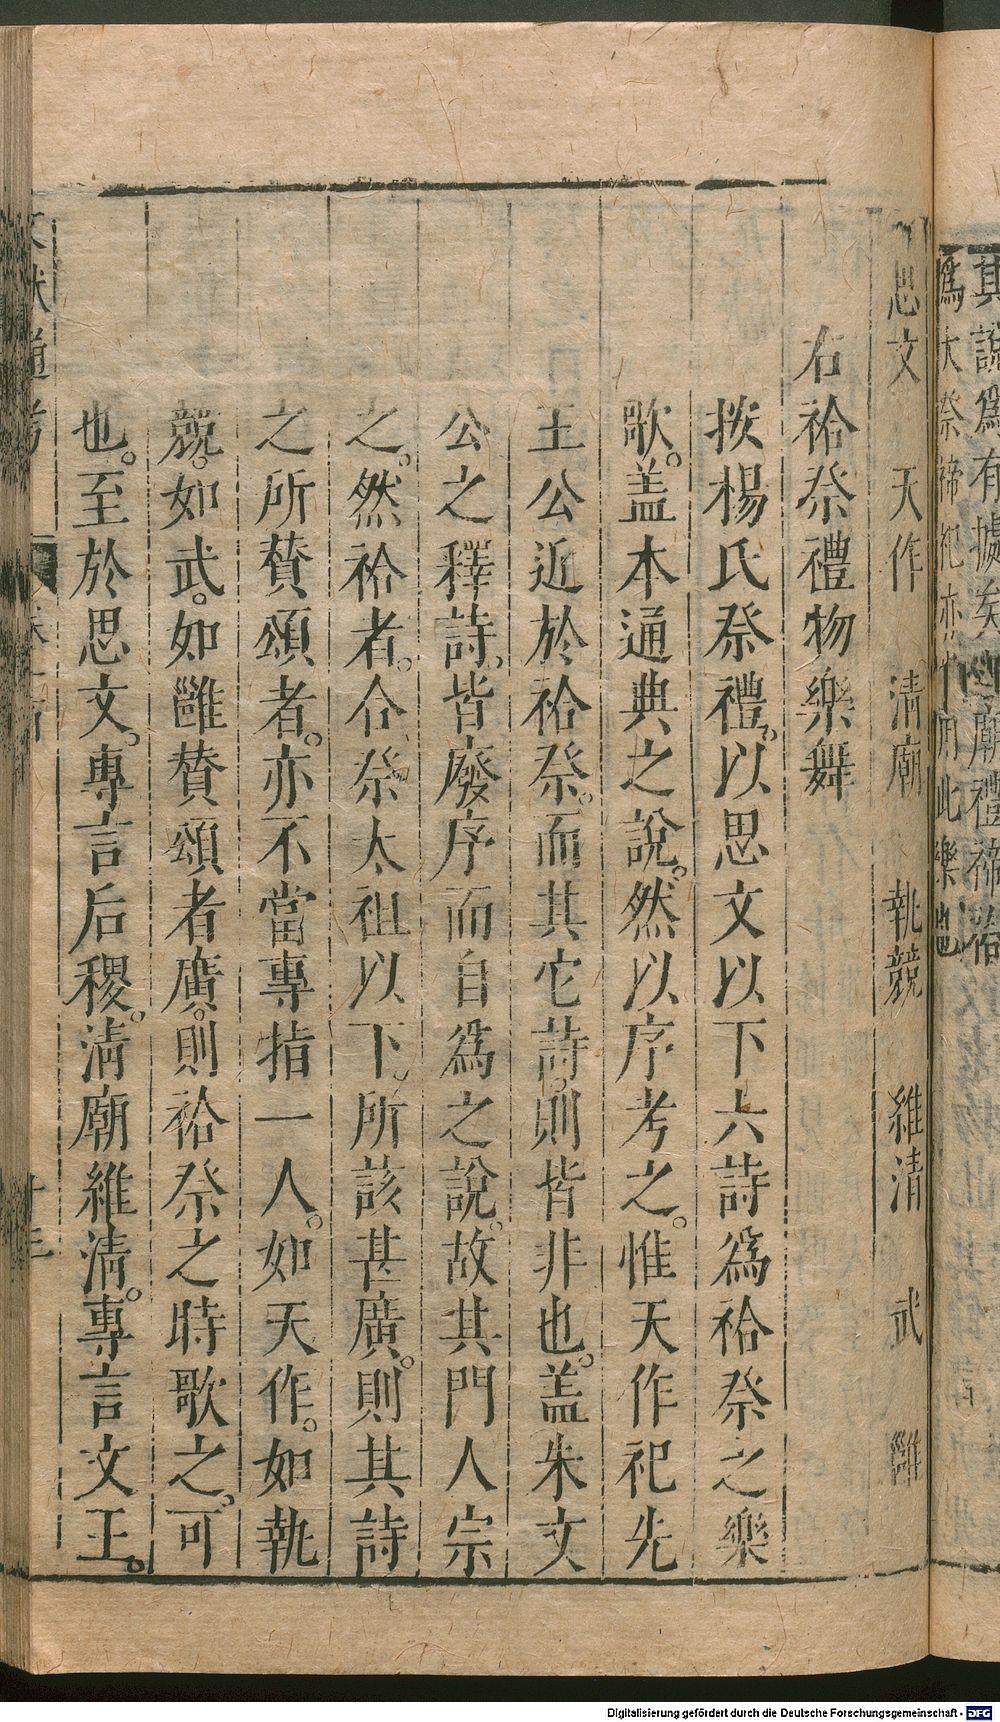 其說爲有據矣
廟禮禘祫
爲大祭禘祀亦
用此樂也
思文 天作 淸廟 執競 維淸 武 雝
右祫祭禮物樂舞
按楊氏祭禮以思文以下六詩爲祫祭之樂
歌。盖本通典之說。然以序考之。惟天作祀先
王公近於祫祭。而其它詩。則皆非也。盖朱文
公之釋詩。皆廢序而自爲之說。故其門人宗
之。然祫者。合祭太祖以下。所該甚廣。則其詩
之所賛頌者。亦不當專指一人。如天作。如執
競。如武。如雝賛頌者廣。則祫祭之時歌之。可
也。至於思文。專言后稷。淸廟維淸。專言文王。
文獻通考
Digitalisierung gefördert durch die Deutsche Forschungsgemeinschaft - DFG